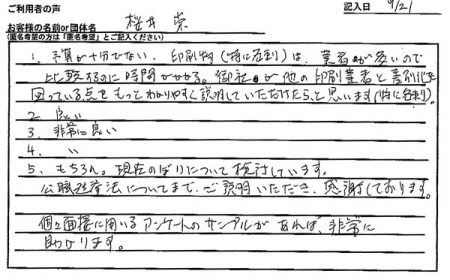 ご利用者の声
記入日 9/21
お客様の名前or団体名 桜井 崇
(匿名希望の方は「匿名希望」とご記入ください)
1. 予算が十分でない、印刷物(特に名刺)は、業者が多いので
比較するのに時間がかかる。御社が他の印刷業者と差別化を
図っている点をもっとわかりやすく説明していただけたらと思います(特に名刺)。
2. 良い
3. 非常に良い
4. 〃
5. もちろん。現在のぼりについて検討しています。
公職選挙法についてまで、ご説明いただき、感謝しております。
個々面接に用いるアンケートのサンプルがあれば、非常に
助かります。